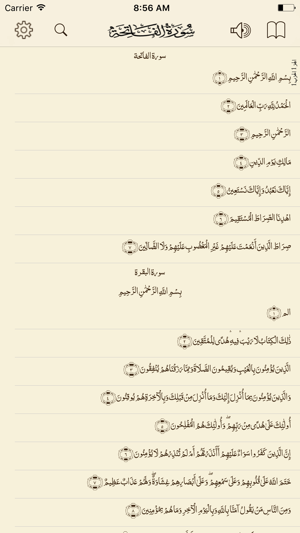 Carrier 8:56 AM
سورة الفاتحة
سورة الفاتحة
بِسْمِ اللَّهِ الرَّحْمَٰنِ الرَّحِيمِ ١
الْحَمْدُ لِلَّهِ رَبِّ الْعَالَمِينَ ٢
الرَّحْمَٰنِ الرَّحِيمِ ٣
مَالِكِ يَوْمِ الدِّينِ ٤
إِيَّاكَ نَعْبُدُ وَإِيَّاكَ نَسْتَعِينُ ٥
اهْدِنَا الصِّرَاطَ الْمُسْتَقِيمَ ٦
صِرَاطَ الَّذِينَ أَنْعَمْتَ عَلَيْهِمْ غَيْرِ الْمَغْضُوبِ عَلَيْهِمْ وَلَا الضَّالِّينَ ٧
سورة البقرة
بِسْمِ اللَّهِ الرَّحْمَٰنِ الرَّحِيمِ
الم ١
ذَٰلِكَ الْكِتَابُ لَا رَيْبَ ۛ فِيهِ ۛ هُدًى لِلْمُتَّقِينَ ٢
الَّذِينَ يُؤْمِنُونَ بِالْغَيْبِ وَيُقِيمُونَ الصَّلَاةَ وَمِمَّا رَزَقْنَاهُمْ يُنْفِقُونَ ٣
وَالَّذِينَ يُؤْمِنُونَ بِمَا أُنْزِلَ إِلَيْكَ وَمَا أُنْزِلَ مِنْ قَبْلِكَ وَبِالْآخِرَةِ هُمْ يُوقِنُونَ ٤
أُولَٰئِكَ عَلَىٰ هُدًى مِنْ رَبِّهِمْ ۖ وَأُولَٰئِكَ هُمُ الْمُفْلِحُونَ ٥
إِنَّ الَّذِينَ كَفَرُوا سَوَاءٌ عَلَيْهِمْ أَأَنْذَرْتَهُمْ أَمْ لَمْ تُنْذِرْهُمْ لَا يُؤْمِنُونَ ٦
خَتَمَ اللَّهُ عَلَىٰ قُلُوبِهِمْ وَعَلَىٰ سَمْعِهِمْ ۖ وَعَلَىٰ أَبْصَارِهِمْ غِشَاوَةٌ ۖ وَلَهُمْ عَذَابٌ عَظِيمٌ ٧
وَمِنَ النَّاسِ مَنْ يَقُولُ آمَنَّا بِاللَّهِ وَبِالْيَوْمِ الْآخِرِ وَمَا هُمْ بِمُؤْمِنِينَ ٨